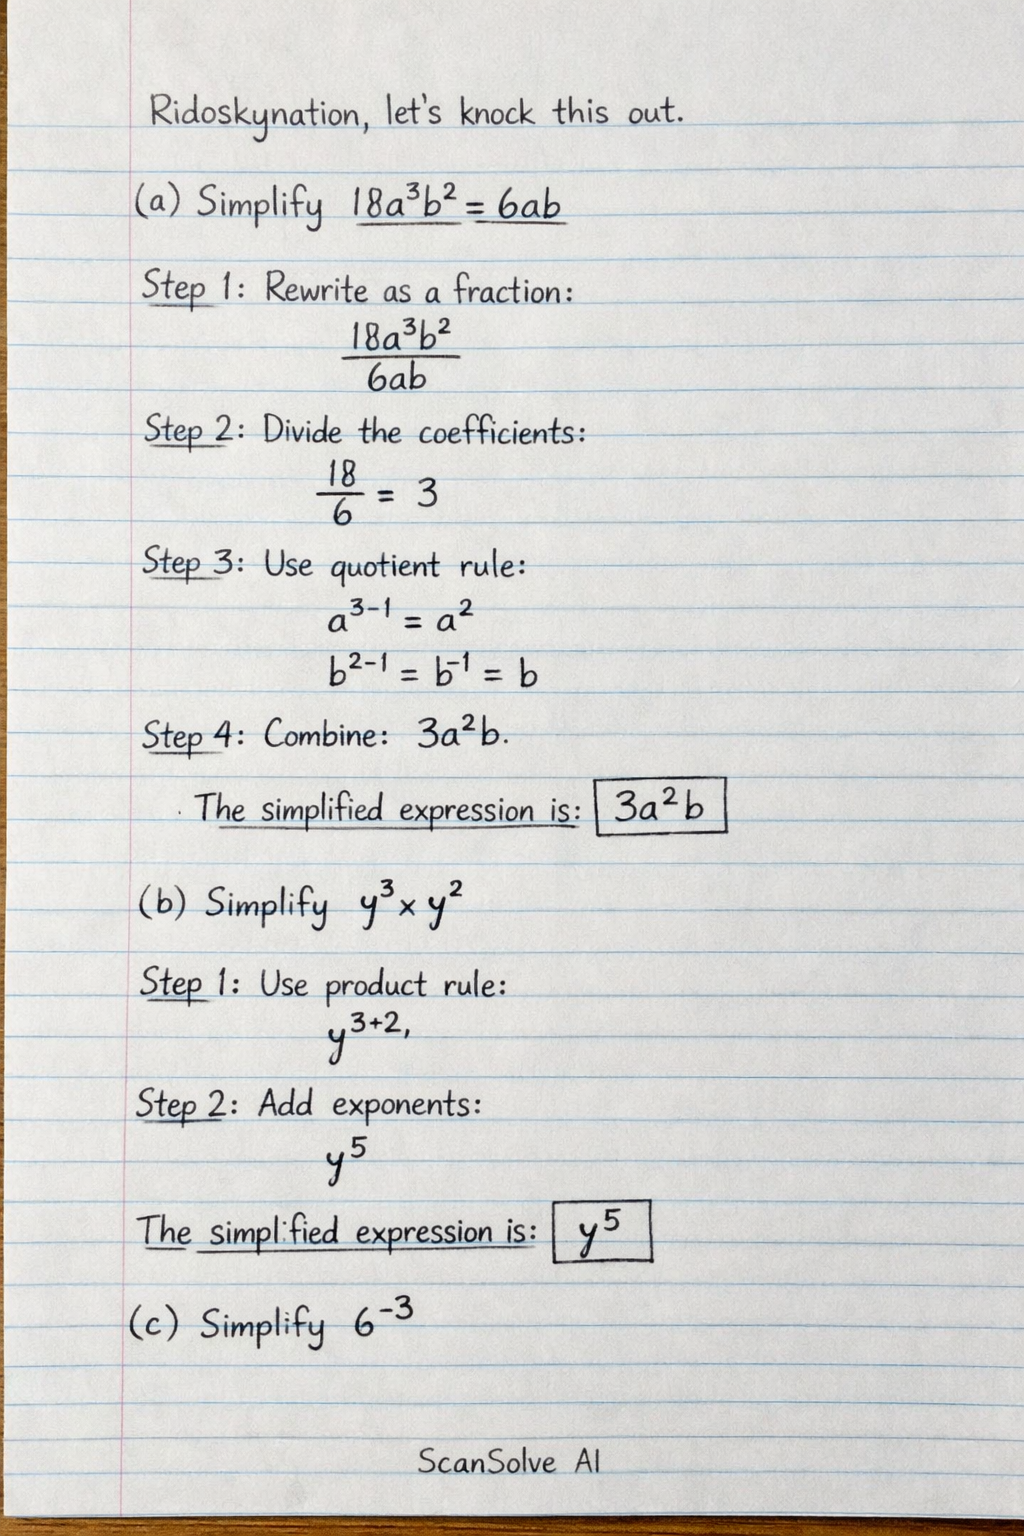 Ridoskynation, let's knock this out.
(a) Simplify 18a³b² = 6ab
Step 1: Rewrite as a fraction:
18a³b²
6ab
Step 2: Divide the coefficients:
18/6 = 3
Step 3: Use quotient rule:
a³⁻¹ = a²
b²⁻¹ = b⁻¹ = b
Step 4: Combine: 3a²b.
The simplified expression is: 3a²b
(b) Simplify y³ x y²
Step 1: Use product rule:
y³⁺²,
Step 2: Add exponents:
y⁵
The simplified expression is: y⁵
(c) Simplify 6⁻³
ScanSolve AI